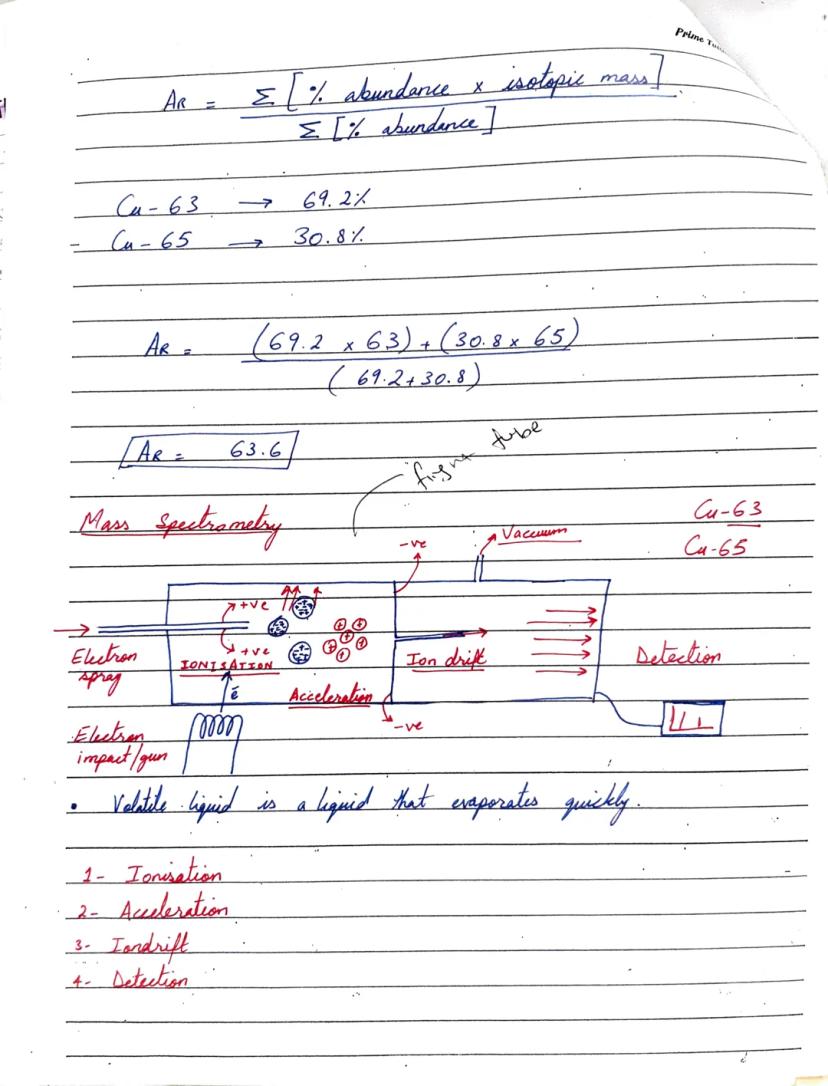 Prime
AR = Σ [% abundance x isotopic mass]
Σ [% abundance]
Cu-63 → 69.2%
Cu-65 → 30.8%
AR = (69.2 x 63) + (30.8 x 65)
(69.2+30.8)
AR = 63.6
flight tube
Mass Spectrometry
Cu-63
-ve
Vacuum
Cu-65
+ve
+ve
Electron
spray
IONISATION
Ion drift
Detection
ē
Acceleration
-ve
Electron
impact/gun
• Volatile liquid is a liquid that evaporates quickly.
1- Ionisation
2- Acceleration
3- Iondrift
4- Detection